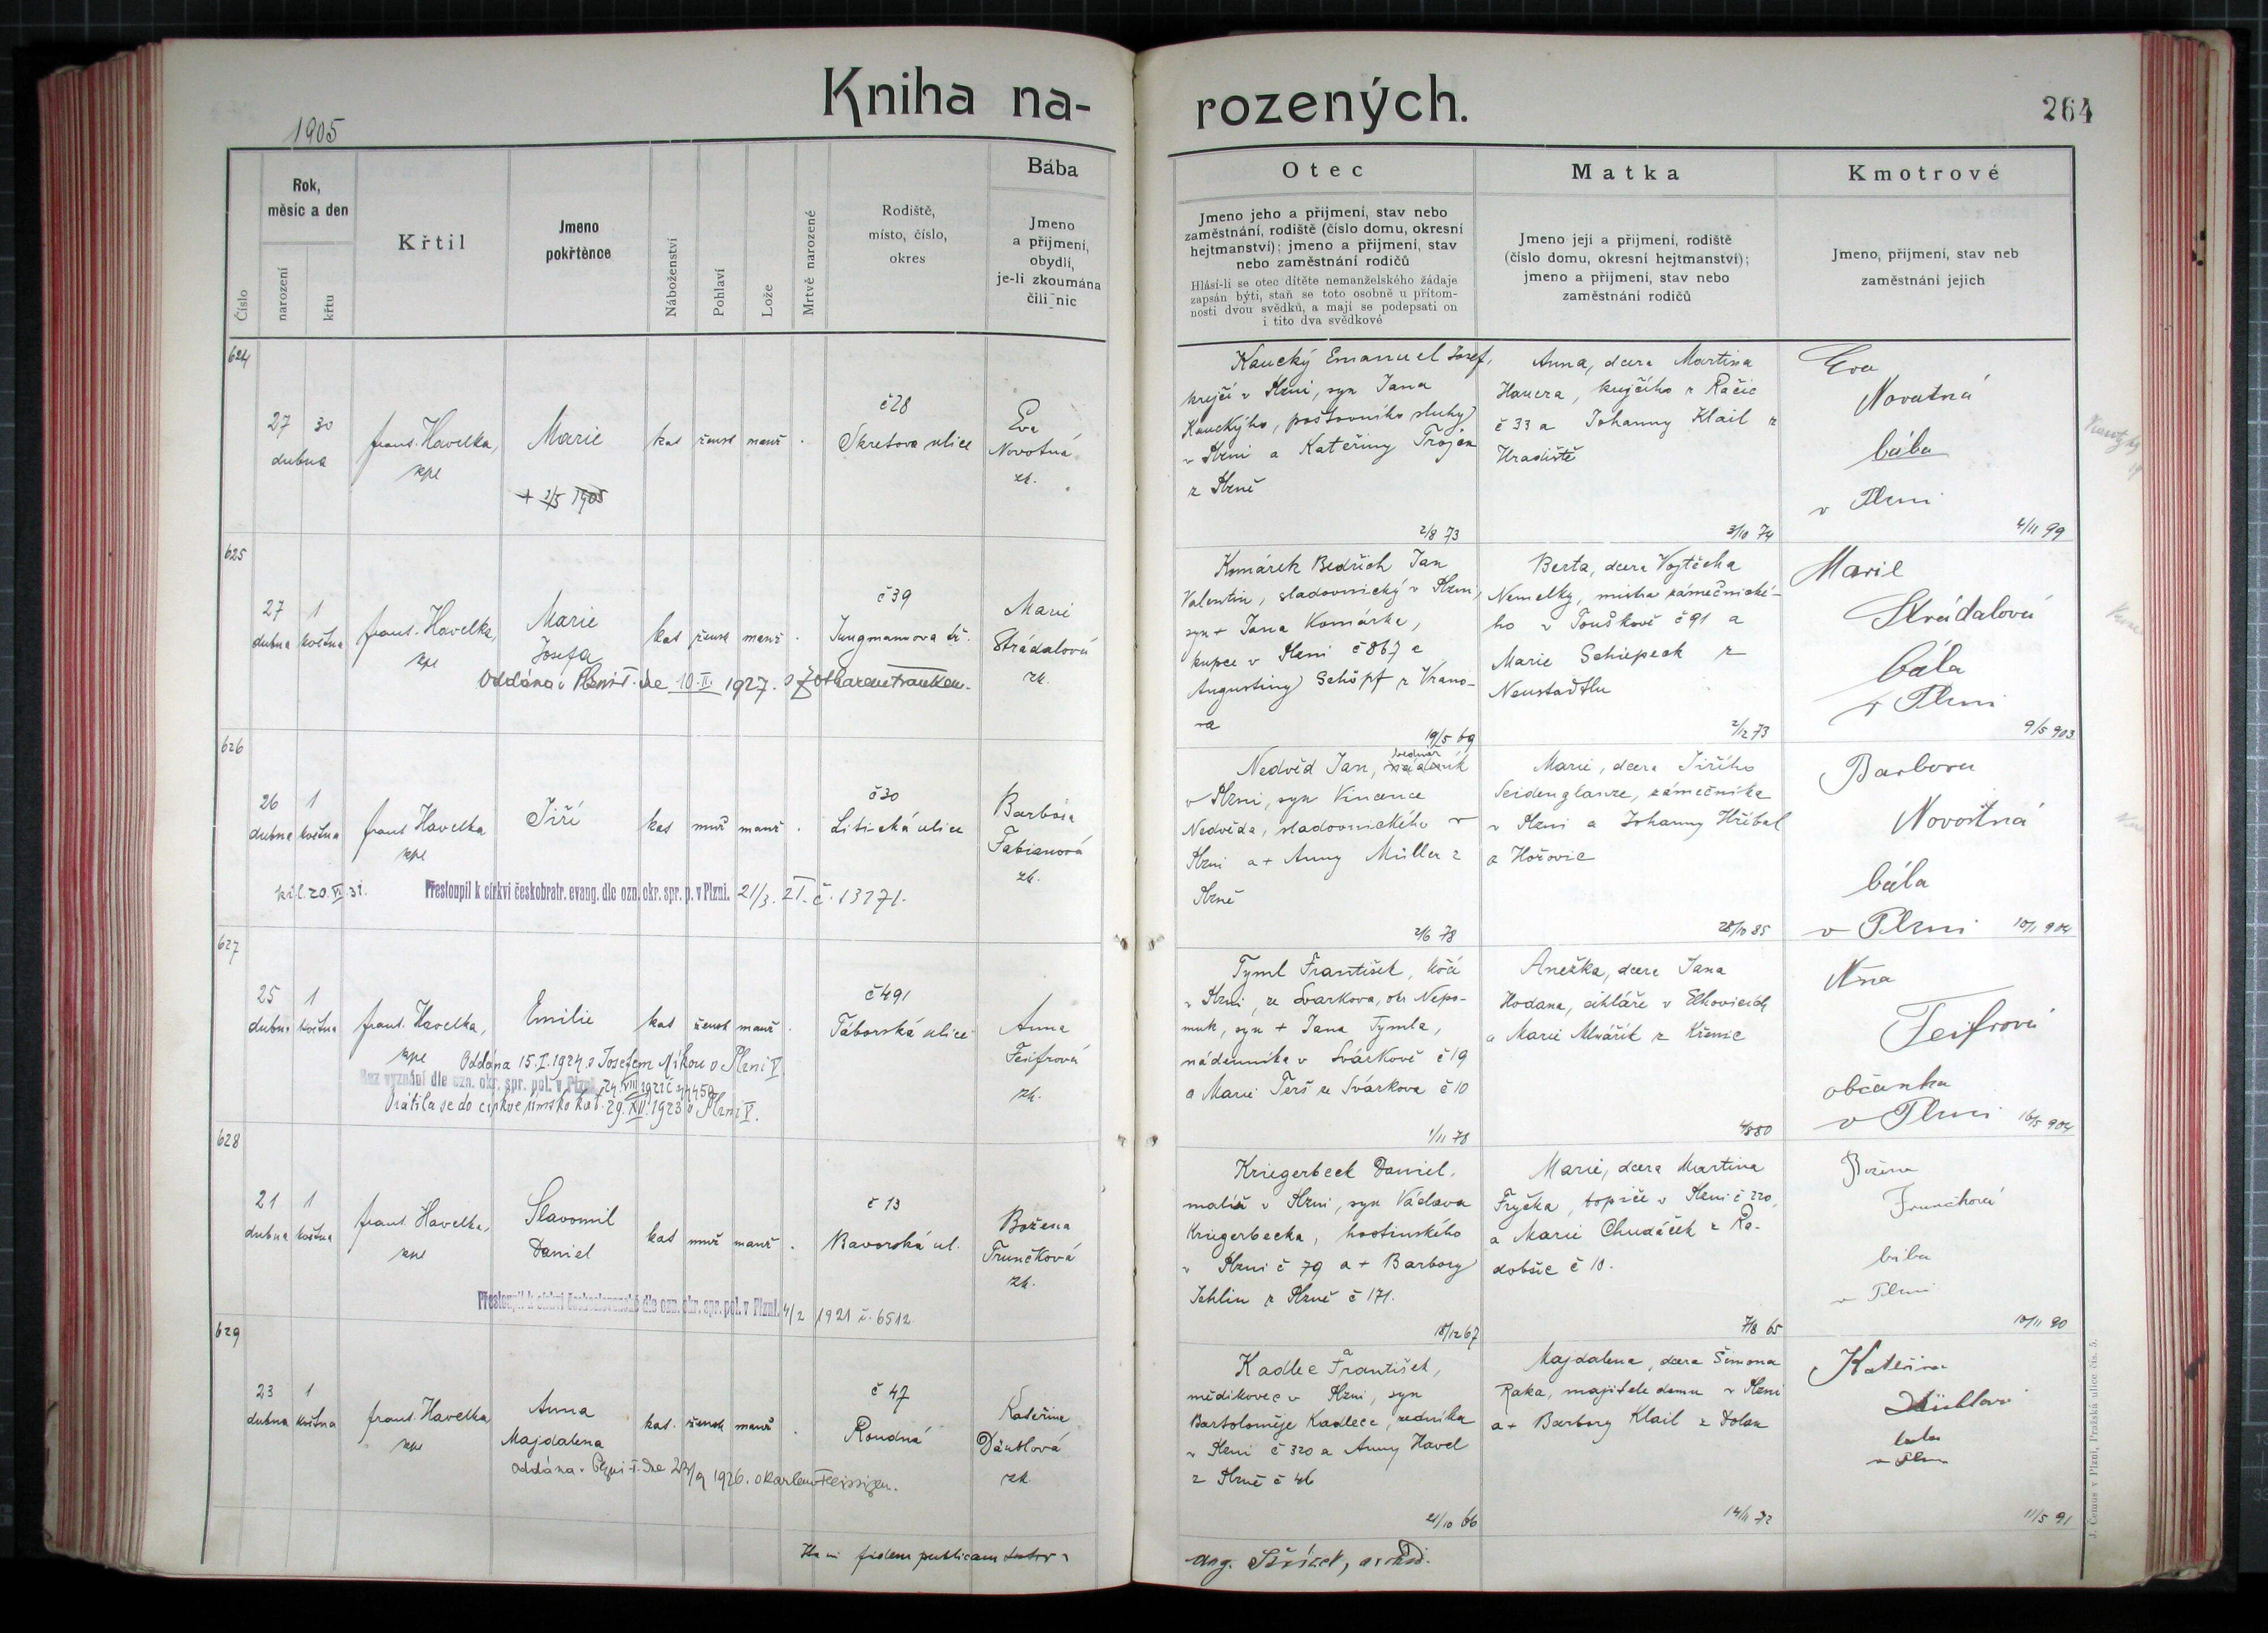 Kniha na-
rozených.
264
1905
Číslo
Rok,
měsíc a den
narození
křtu
Křtil
Jmeno
pokřtěnce
Náboženství
Pohlaví
Lože
Mrtvě narozené
Rodiště,
místo, číslo,
okres
Bába
Jmeno
a příjmení,
obydlí,
je-li zkoumána
čili nic
Otec
Jmeno jeho a příjmení, stav nebo
zaměstnání, rodiště (číslo domu, okresní
hejtmanství); jmeno a příjmení, stav
nebo zaměstnání rodičů
Hlásí-li se otec dítěte nemanželského žádaje
zapsán býti, staň se toto osobně u přítom-
nosti dvou svědků, a mají se podepsati on
i tito dva svědkové
Matka
Jmeno její a příjmení, rodiště
(číslo domu, okresní hejtmanství);
jmeno a příjmení, stav nebo
zaměstnání rodičů
Kmotrové
Jmeno, příjmení, stav neb
zaměstnání jejich
624
27 30
dubna
frant. Havelka,
kpl
Marie
+ 2/5 1905
kat
žensk
manž
č 28
Skretova ulice
Eva
Novotná
zk.
Kaucký Emanuel Josef,
krejčí v Plzni, syn Jana
Kauckýho, poštovního sluhy
v Plzni a Kateřiny Trojan
z Plzně
2/8 73
Anna, dcera Martina
Hauera, krejčího z Račic
č 33 a Johanny Klail z
Hradiště
3/10 74
Eva
Novotná
bába
v Plzni
4/11 99
625
27 1
dubna května
frant. Havelka,
kpl
Marie
Josefa
kat
žensk
manž
č 39
Jungmannova tř.
Marie
Strádalová
zk.
Oddána v Plzni I. dne 10. II. 1927.
Komárek Bedřich Jan
Valentin, sladovnický v Plzni,
syn + Jana Komárka,
kupce v Plzni č 867 a
Augustiny Schöpf z Vrano-
va
19/5 69
Berta, dcera Vojtěcha
Nemelky, mistra zámečnické-
ho v Touškově č 91 a
Marie Schiepeck z
Neustadtlu
2/2 73
Marie
Strádalová
bába
v Plzni
9/5 903
626
26 1
dubna května
frant Havelka
kpl
Jiří
kat
muž
manž
č 30
Litická ulice
Barbora
Fabianová
zk.
20. VI. 31.
Přestoupil k církvi českobratr. evang. dle ozn. okr. spr. p. v Plzni. 21/3. 21. č. 13271.
Nedvěd Jan, bednář
v Plzni, syn Vincence
Nedvěda, sladovnického v
Plzni a + Anny Müller z
Plzně
2/6 78
Marie, dcera Jiřího
Seidenglanze, zámečníka
v Plzni a Johanny Hřibal
z Hořovic
28/10 85
Barbora
Novotná
bába
v Plzni
10/1 904
627
25 1
dubna května
frant. Havelka,
kpl
Emilie
kat
žensk
manž
č 491
Táborská ulice
Anna
Feifrová
zk.
Oddána 15. I. 1924 s Josefem Níkou v Plzni V
Bez vyznání dle ozn. okr. spr. pol. v Plzni 24. VIII 1921
Vrátila se do církve římsko kat. 29. XII. 1923 v Plzni V.
Tyml František, kočí
v Plzni, ze Svarkova, okr. Nepo-
muk, syn + Jana Tymla,
nádenníka v Svárkově č 19
a Marie Terš ze Svárkova č 10
1/11 78
Anežka, dcera Jana
Hodana, cihláře v Elhovicích
a Marie Mlnářík z Křenic
Anna
Feifrová
občanka
v Plzni
16/5 904
628
21 1
dubna května
frant. Havelka,
kpl
Slavomil
Daniel
kat
muž
manž
č 13
Bavorská ul.
Božena
Trunčková
zk.
Přestoupil k církvi československé dle ozn. okr. spr. pol. v Plzni. 4/2 1921 č. 6512
Kriegerbeck Daniel,
malíř v Plzni, syn Václava
Kriegerbecka, hostinského
v Plzni č 79 a + Barbory
Ichlin z Plzně č 171.
18/12 67
Marie, dcera Martina
Fryčka, topiče v Plzni č 220,
a Marie Chudáček z Ro-
dobšic č 10.
7/8 65
Božena
Trunčková
bába
v Plzni
10/11 90
629
23 1
dubna května
frant. Havelka
kpl
Anna
Majdalena
kat.
žensk
manž
č 47
Roudná
Kateřina
Däublová
zk
Oddána v Plzni I. dne 1926. s Karlem
Kadlec František,
mědikovec v Plzni, syn
Bartoloměje Kadlece, zedníka
v Plzni č 320 a Anny Havel
z Plzně č 46
21/10 66
Majdalena, dcera Šimona
Raka, majitele domu v Plzni
a + Barbory Klail z Dolan
14/11 72
Kateřina
Däublová
bába
v Plzni
11/5 91
fidem publicam testor:
J. Čemus v Plzni, Pražská ulice čís. 5.